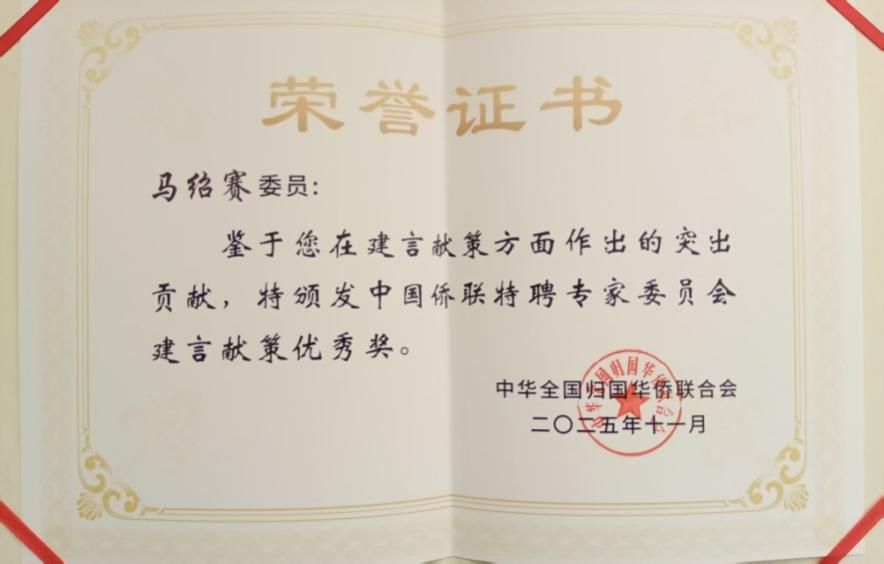 荣誉证书
马绍赛委员:
鉴于您在建言献策方面作出的突出
贡献，特颁发中国侨联特聘专家委员会
建言献策优秀奖。
中华全国归国华侨联合会
二〇二五年十一月
中华全国归国华侨联合会